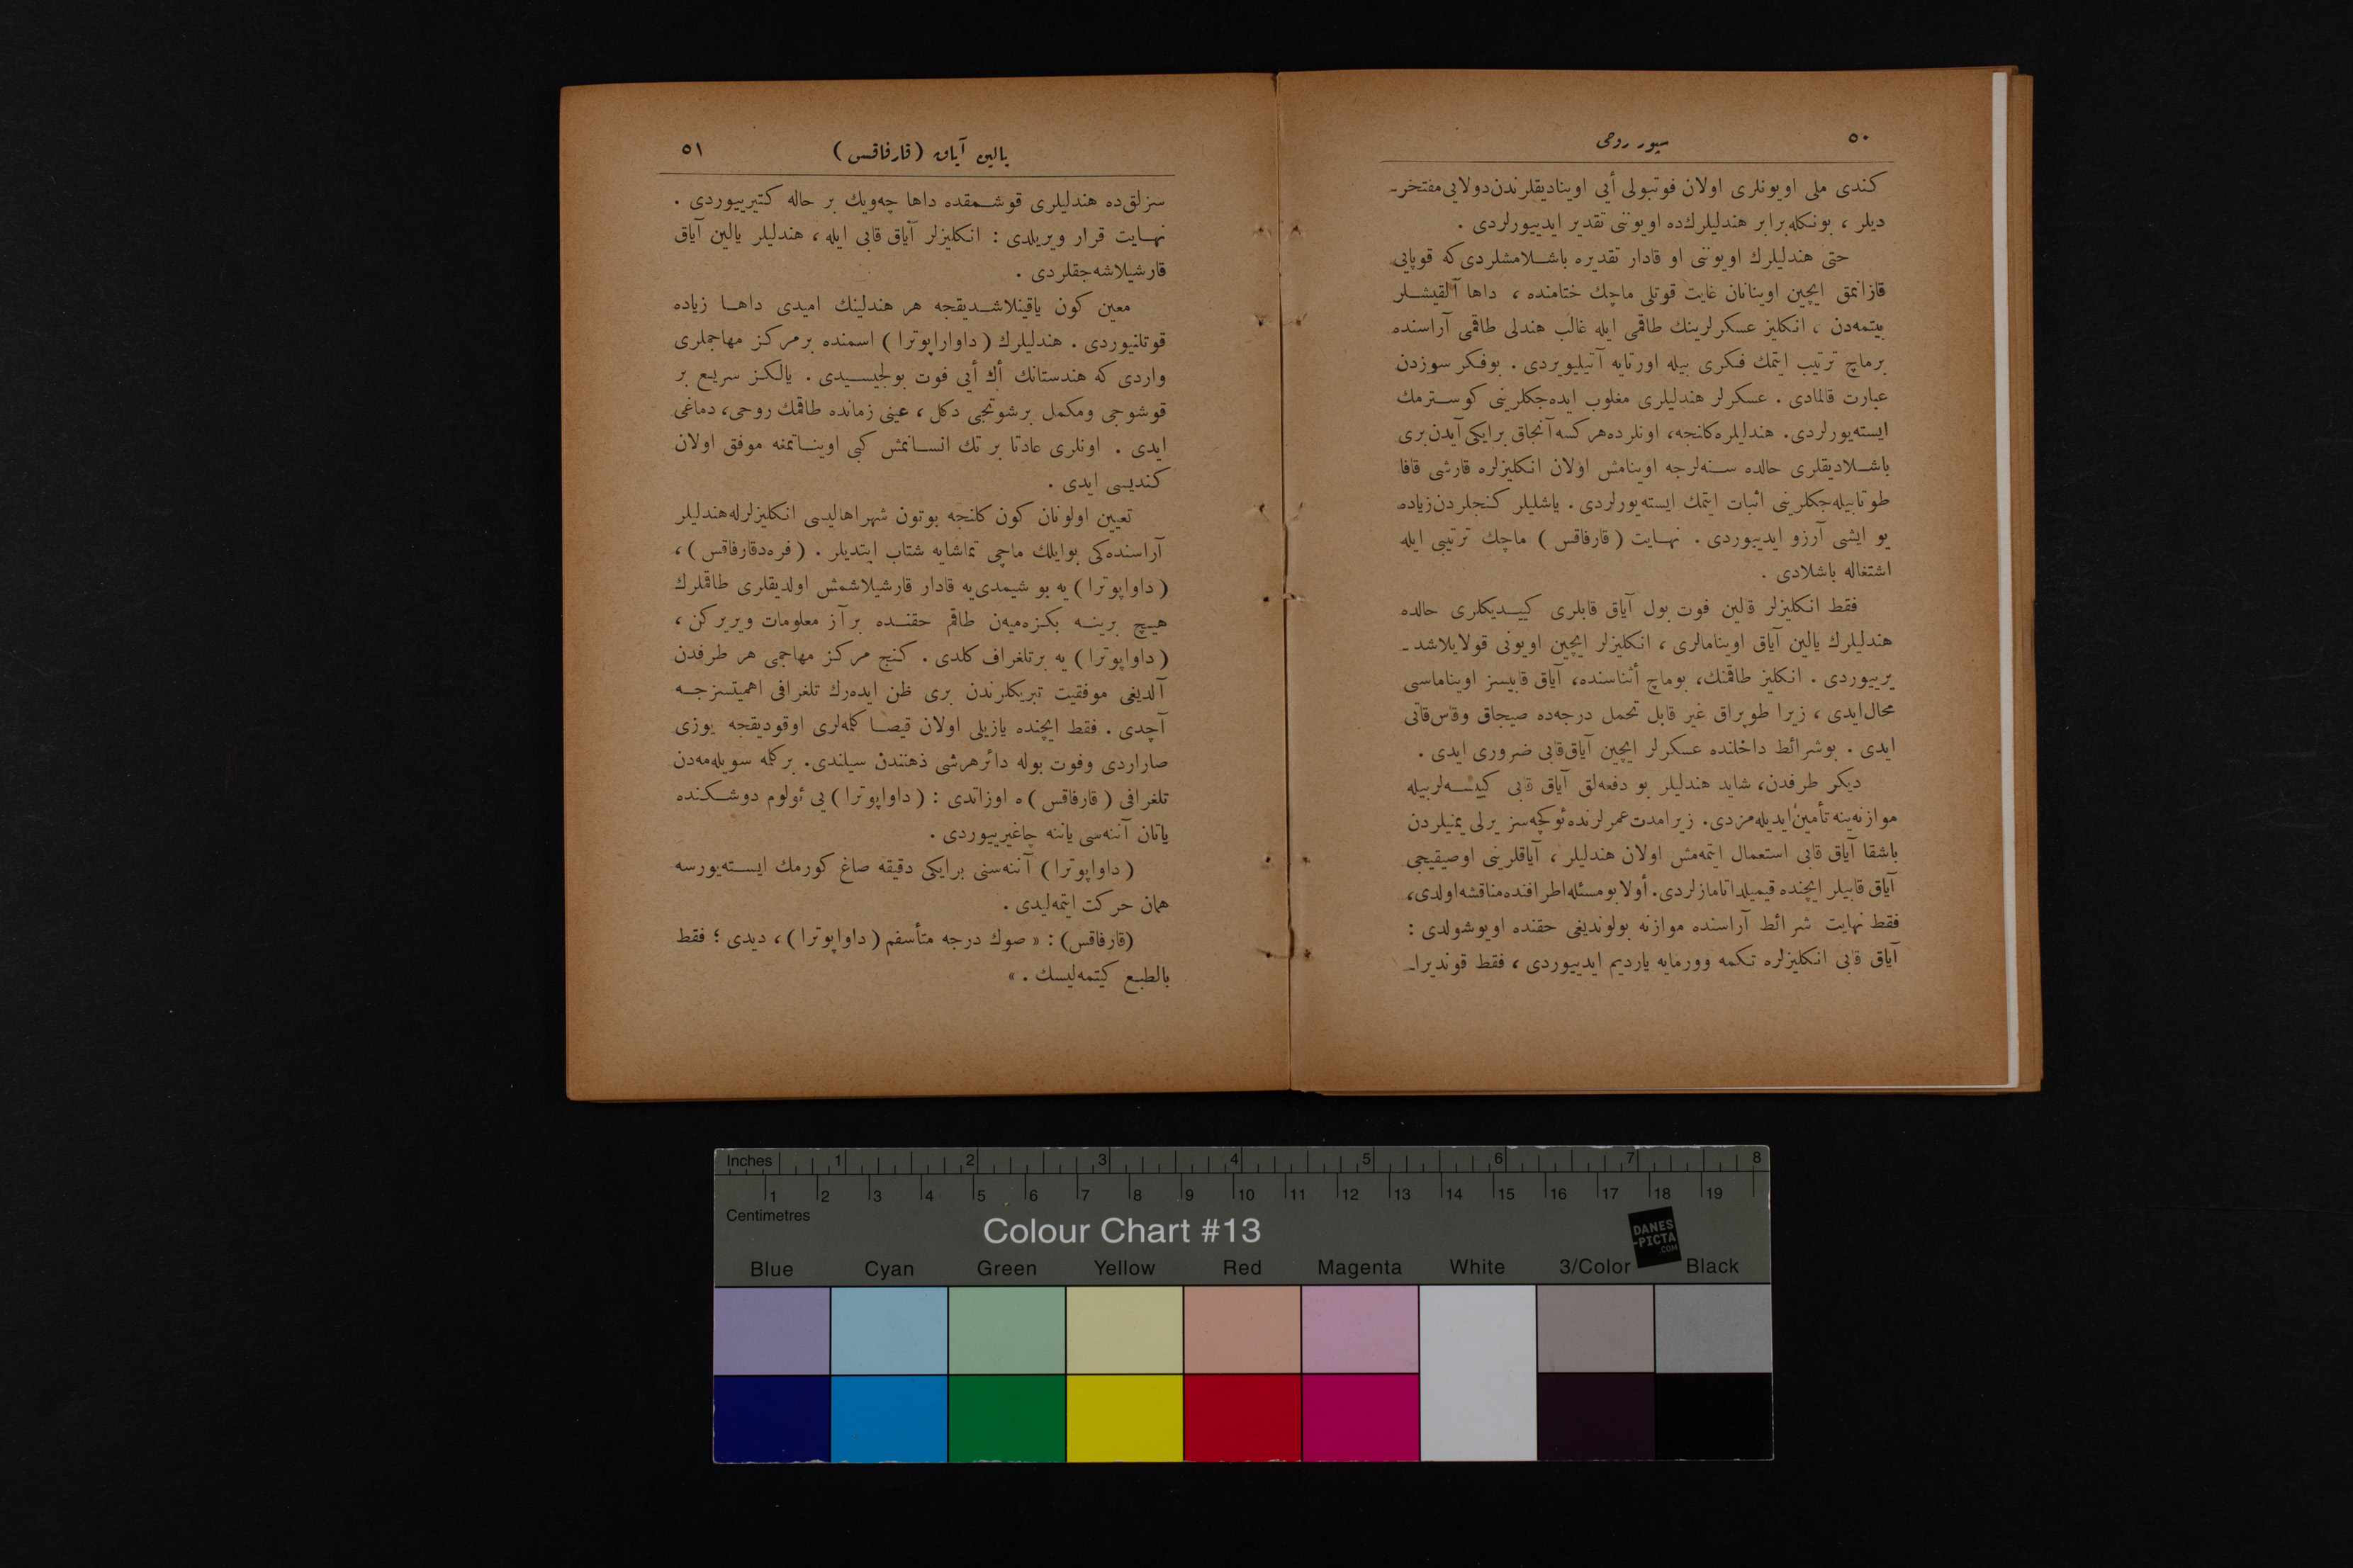 ٥٠
سپور روحی
كندی ملی اویونلری اولان فوتبولی أیی اوینادیقلرندن دولایی مفتخر-
دیلر ، بونكله برابر هندلیلرك ده اویوننی تقدیر ایدییورلردی .
حتی هندلیلرك اویوننی او قادار تقدیره باشلامشلردی كه قوپایی
قازانمق ایچین اوینانان غایت قوتلی ماچك ختامنده ، داها آلقیشلر
بیتمه‌دن ، انكلیز عسكرلرینك طاقمی ایله غالب هندلی طاقمی آراسنده
برماچ ترتیب ایتمك فكری بیله اورتایه آتیلیویردی . بوفكر سوزدن
عبارت قالمادی . عسكرلر هندلیلری مغلوب ایده‌جكلرینی كوسترمك
ایسته‌یورلردی. هندلیلره كلنجه، اونلرده هركسه آنجاق برایكی آیدن بری
باشلادیقلری حالده سنه‌لرجه اوینامش اولان انكلیزلره قارشی قافا
طوتابیله‌جكلرینی اثبات ایتمك ایسته‌یورلردی . یاشلیلر كنجلردن زیاده
بو ایشی آرزو ایدییوردی . نهایت ( قارفاقس ) ماچك ترتیبی ایله
اشتغاله باشلادی .
فقط انكلیزلر قالین فوت بول آیاق قابلری كییدیكلری حالده
هندلیلرك یالین آیاق اوینامالری ، انكلیزلر ایچین اویونی قولایلاشد-
یرییوردی . انكلیز طاقمنك، بوماچ أثناسنده، آیاق قابیسز اوینماسی
محال ایدی ، زیرا طوپراق غیر قابل تحمل درجه‌ده صیجاق وقاس قاتی
ایدی . بوشرائط داخلنده عسكرلر ایچین آیاق قابی ضروری ایدی .
دیكر طرفدن، شاید هندلیلر بو دفعه‌لق آیاق قابی كیسه‌لر بیله
موازنه ینه تأمین ایدیله‌مزدی. زیرا مدت عمرلرنده ئوكچه‌سز یرلی یمنیلردن
باشقا آیاق قابی استعمال ایتمه‌مش اولان هندلیلر ، آیاقلرینی اوصیقیجی
آیاق قابیلر ایچنده قیمیلداتامازلردی. أولا بومسئله اطرافنده مناقشه اولدی،
فقط نهایت شرائط آراسنده موازنه بولوندیغی حقنده اویوشولدی :
آیاق قابی انكلیزلره تكمه وورمایه یاردیم ایدییوردی ، فقط قوندیرا-
یالین آیاق ( قارفاقس )
٥١
سزلق ده هندلیلری قوشمقده داها چه‌ویك بر حاله كتیرییوردی .
نهایت قرار ویریلدی : انكلیزلر آیاق قابی ایله ، هندلیلر یالین آیاق
قارشیلاشه‌جقلردی .
معین كون یاقینلاشدیقجه هر هندلینك امیدی داها زیاده
قوتلنیوردی . هندلیلرك ( داواراپوترا ) اسمنده برمركز مهاجملری
واردی كه هندستانك أك أیی فوت بولجیسیدی . یالكز سریع بر
قوشوجی ومكمل برشوتجی دكل ، عینی زمانده طاقمك روحی، دماغی
ایدی . اونلری عادتا بر تك انسانمش كبی اویناتمغه موفق اولان
كندیسی ایدی .
تعیین اولونان كون كلنجه بوتون شهر اهالیسی انكلیزلرله هندلیلر
آراسنده‌كی بوایلك ماچی تماشایه شتاب ایتدیلر . ( فره‌دقارفاقس ) ،
( داواپوترا ) یه بو شیمدی‌یه قادار قارشیلاشمش اولدیقلری طاقملرك
هیچ برینه بكزه‌میه‌ن طاقم حقنده برآز معلومات ویریركن ،
( داواپوترا ) یه برتلغراف كلدی . كنج مركز مهاجمی هر طرفدن
آلدیغی موفقیت تبریكلرندن بری ظن ایده‌رك تلغرافی اهمیتسزجه
آچدی . فقط ایچنده یازیلی اولان قیصا كله‌لری اوقودیقجه یوزی
صاراردی وفوت بوله دائر هرشی ذهنندن سیلندی. بركله سویله‌مه‌دن
تلغرافی ( قارفاقس ) ه اوزاتدی : ( داواپوترا ) یی ئولوم دوشكنده
یاتان آننه‌سی یاننه چاغیرییوردی .
( داواپوترا ) آننه‌سنی برایكی دقیقه صاغ كورمك ایسته‌یورسه
همان حركت ایتمه‌لیدی .
(قارفاقس) : « صوك درجه متأسفم ( داواپوترا ) ، دیدی ؛ فقط
بالطبع كیتمه‌لیسك . »
Inches 1 2 3 4 5 6 7 8
1 2 3 4 5 6 7 8 9 10 11 12 13 14 15 16 17 18 19
Centimetres
Colour Chart #13
DANES
-PICTA
.COM
Blue Cyan Green Yellow Red Magenta White 3/Color Black